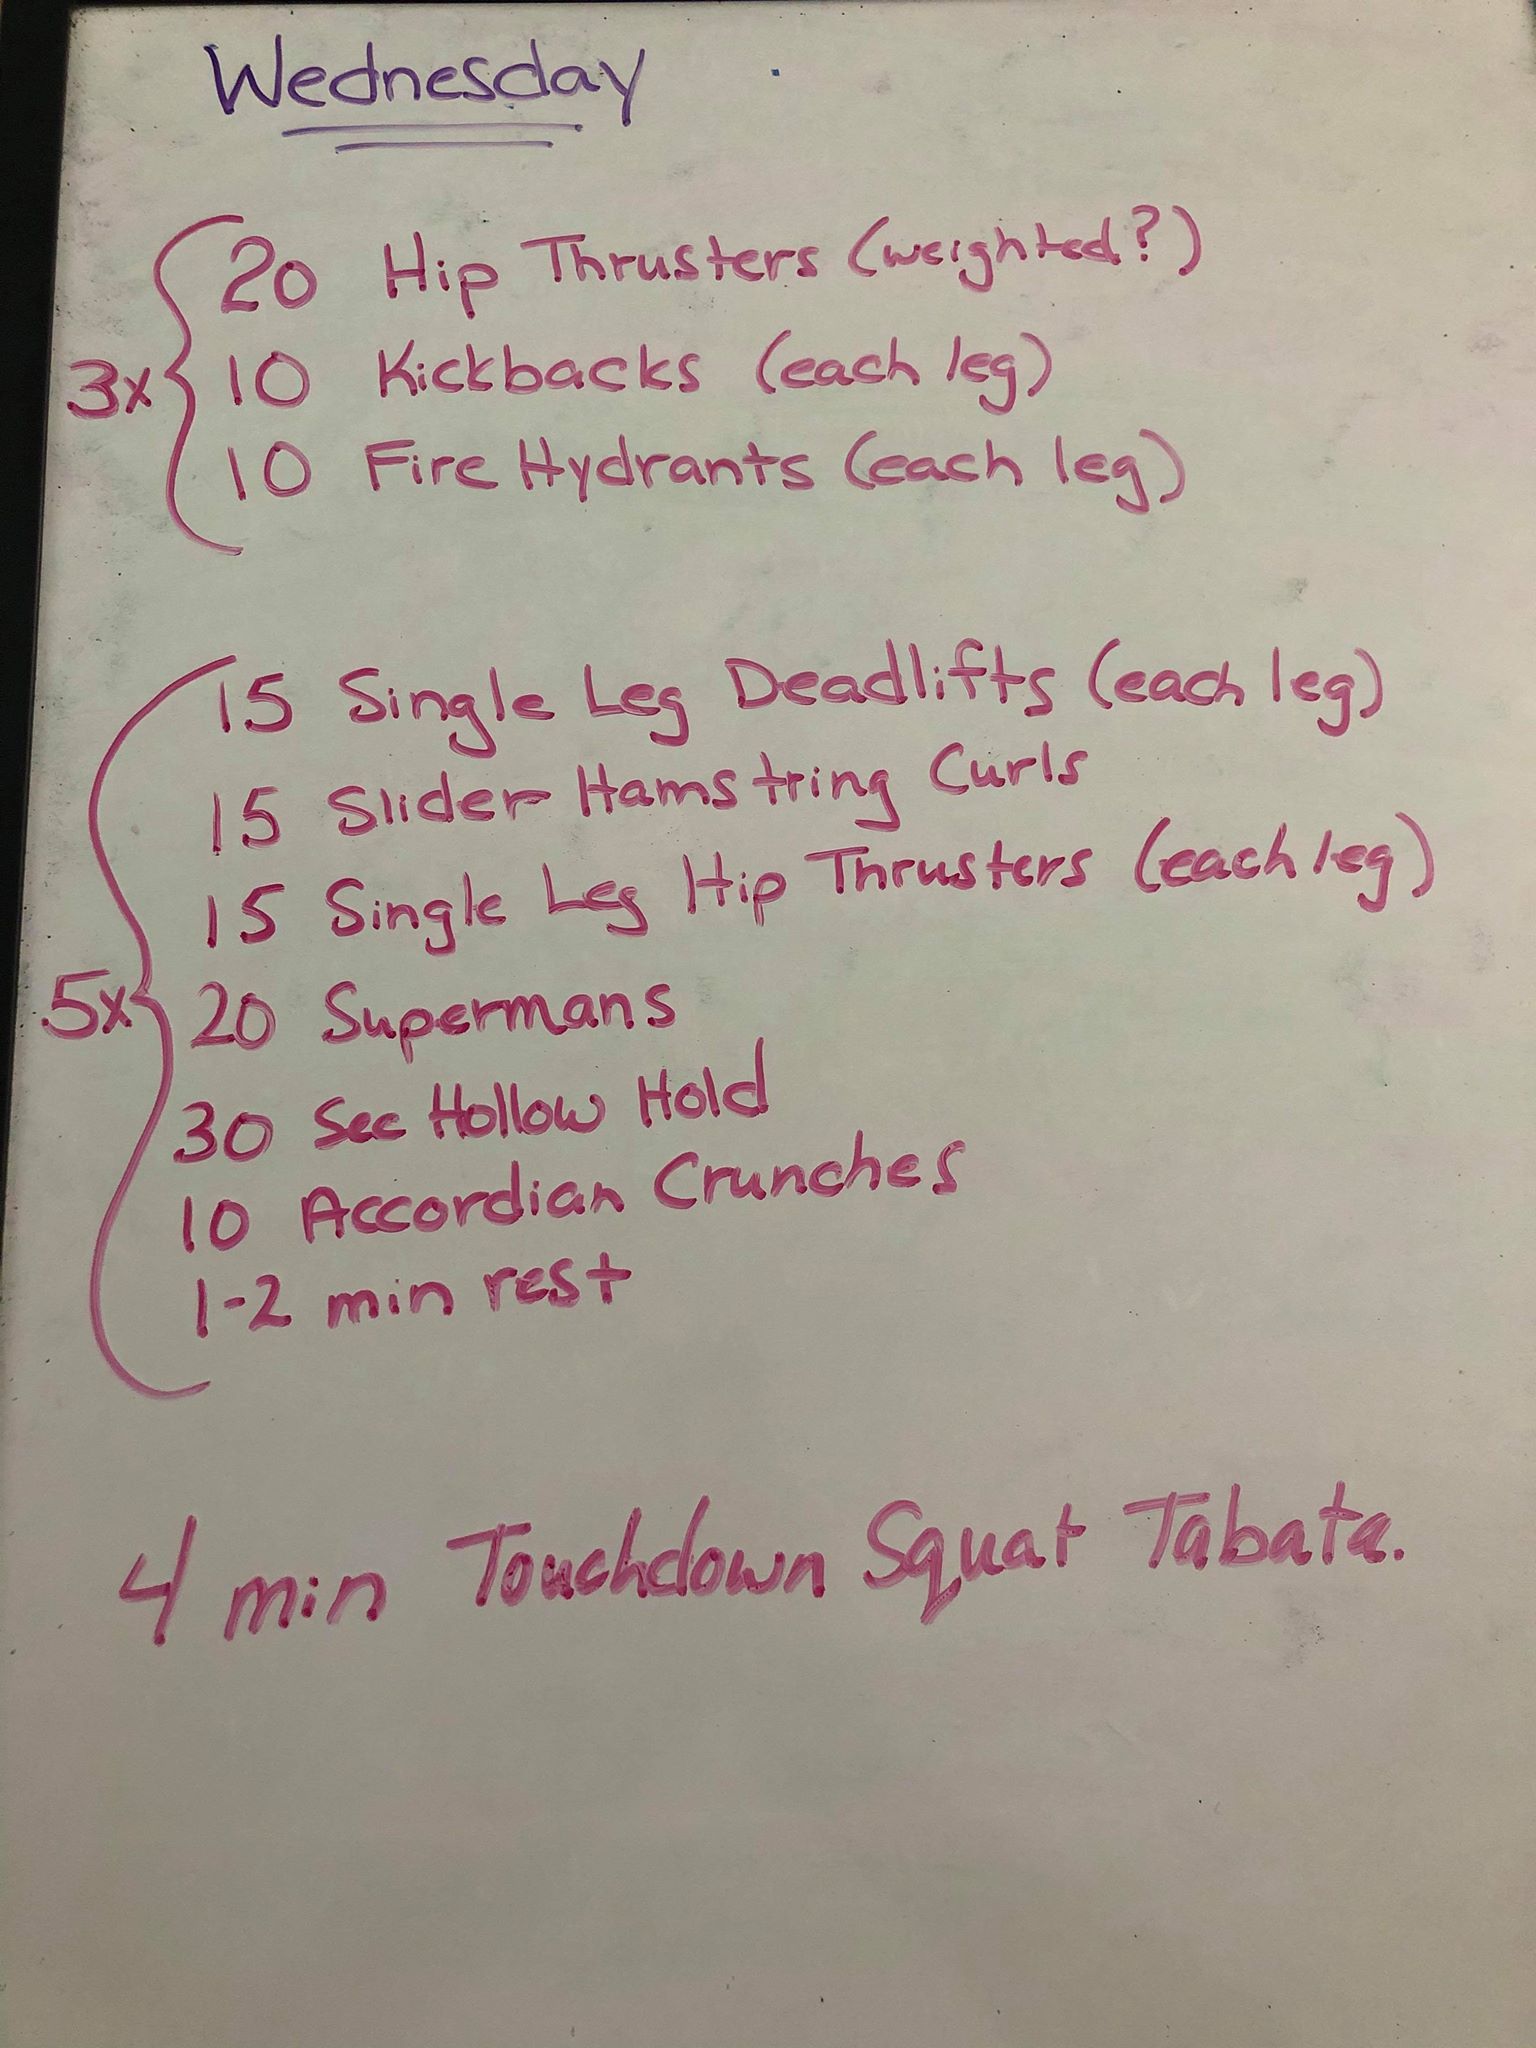 Wednesday
20 Hip Thrusters (weighted?)
3x
10 Kickbacks (each leg)
10 Fire Hydrants (each leg)
15 Single Leg Deadlifts (each leg)
15 Slider Hamstring Curls
15 Single Leg Hip Thrusters (each leg)
5x
20 Supermans
30 Sec Hollow Hold
10 Accordian Crunches
1-2 min rest
4 min Touchdown Squat Tabata.